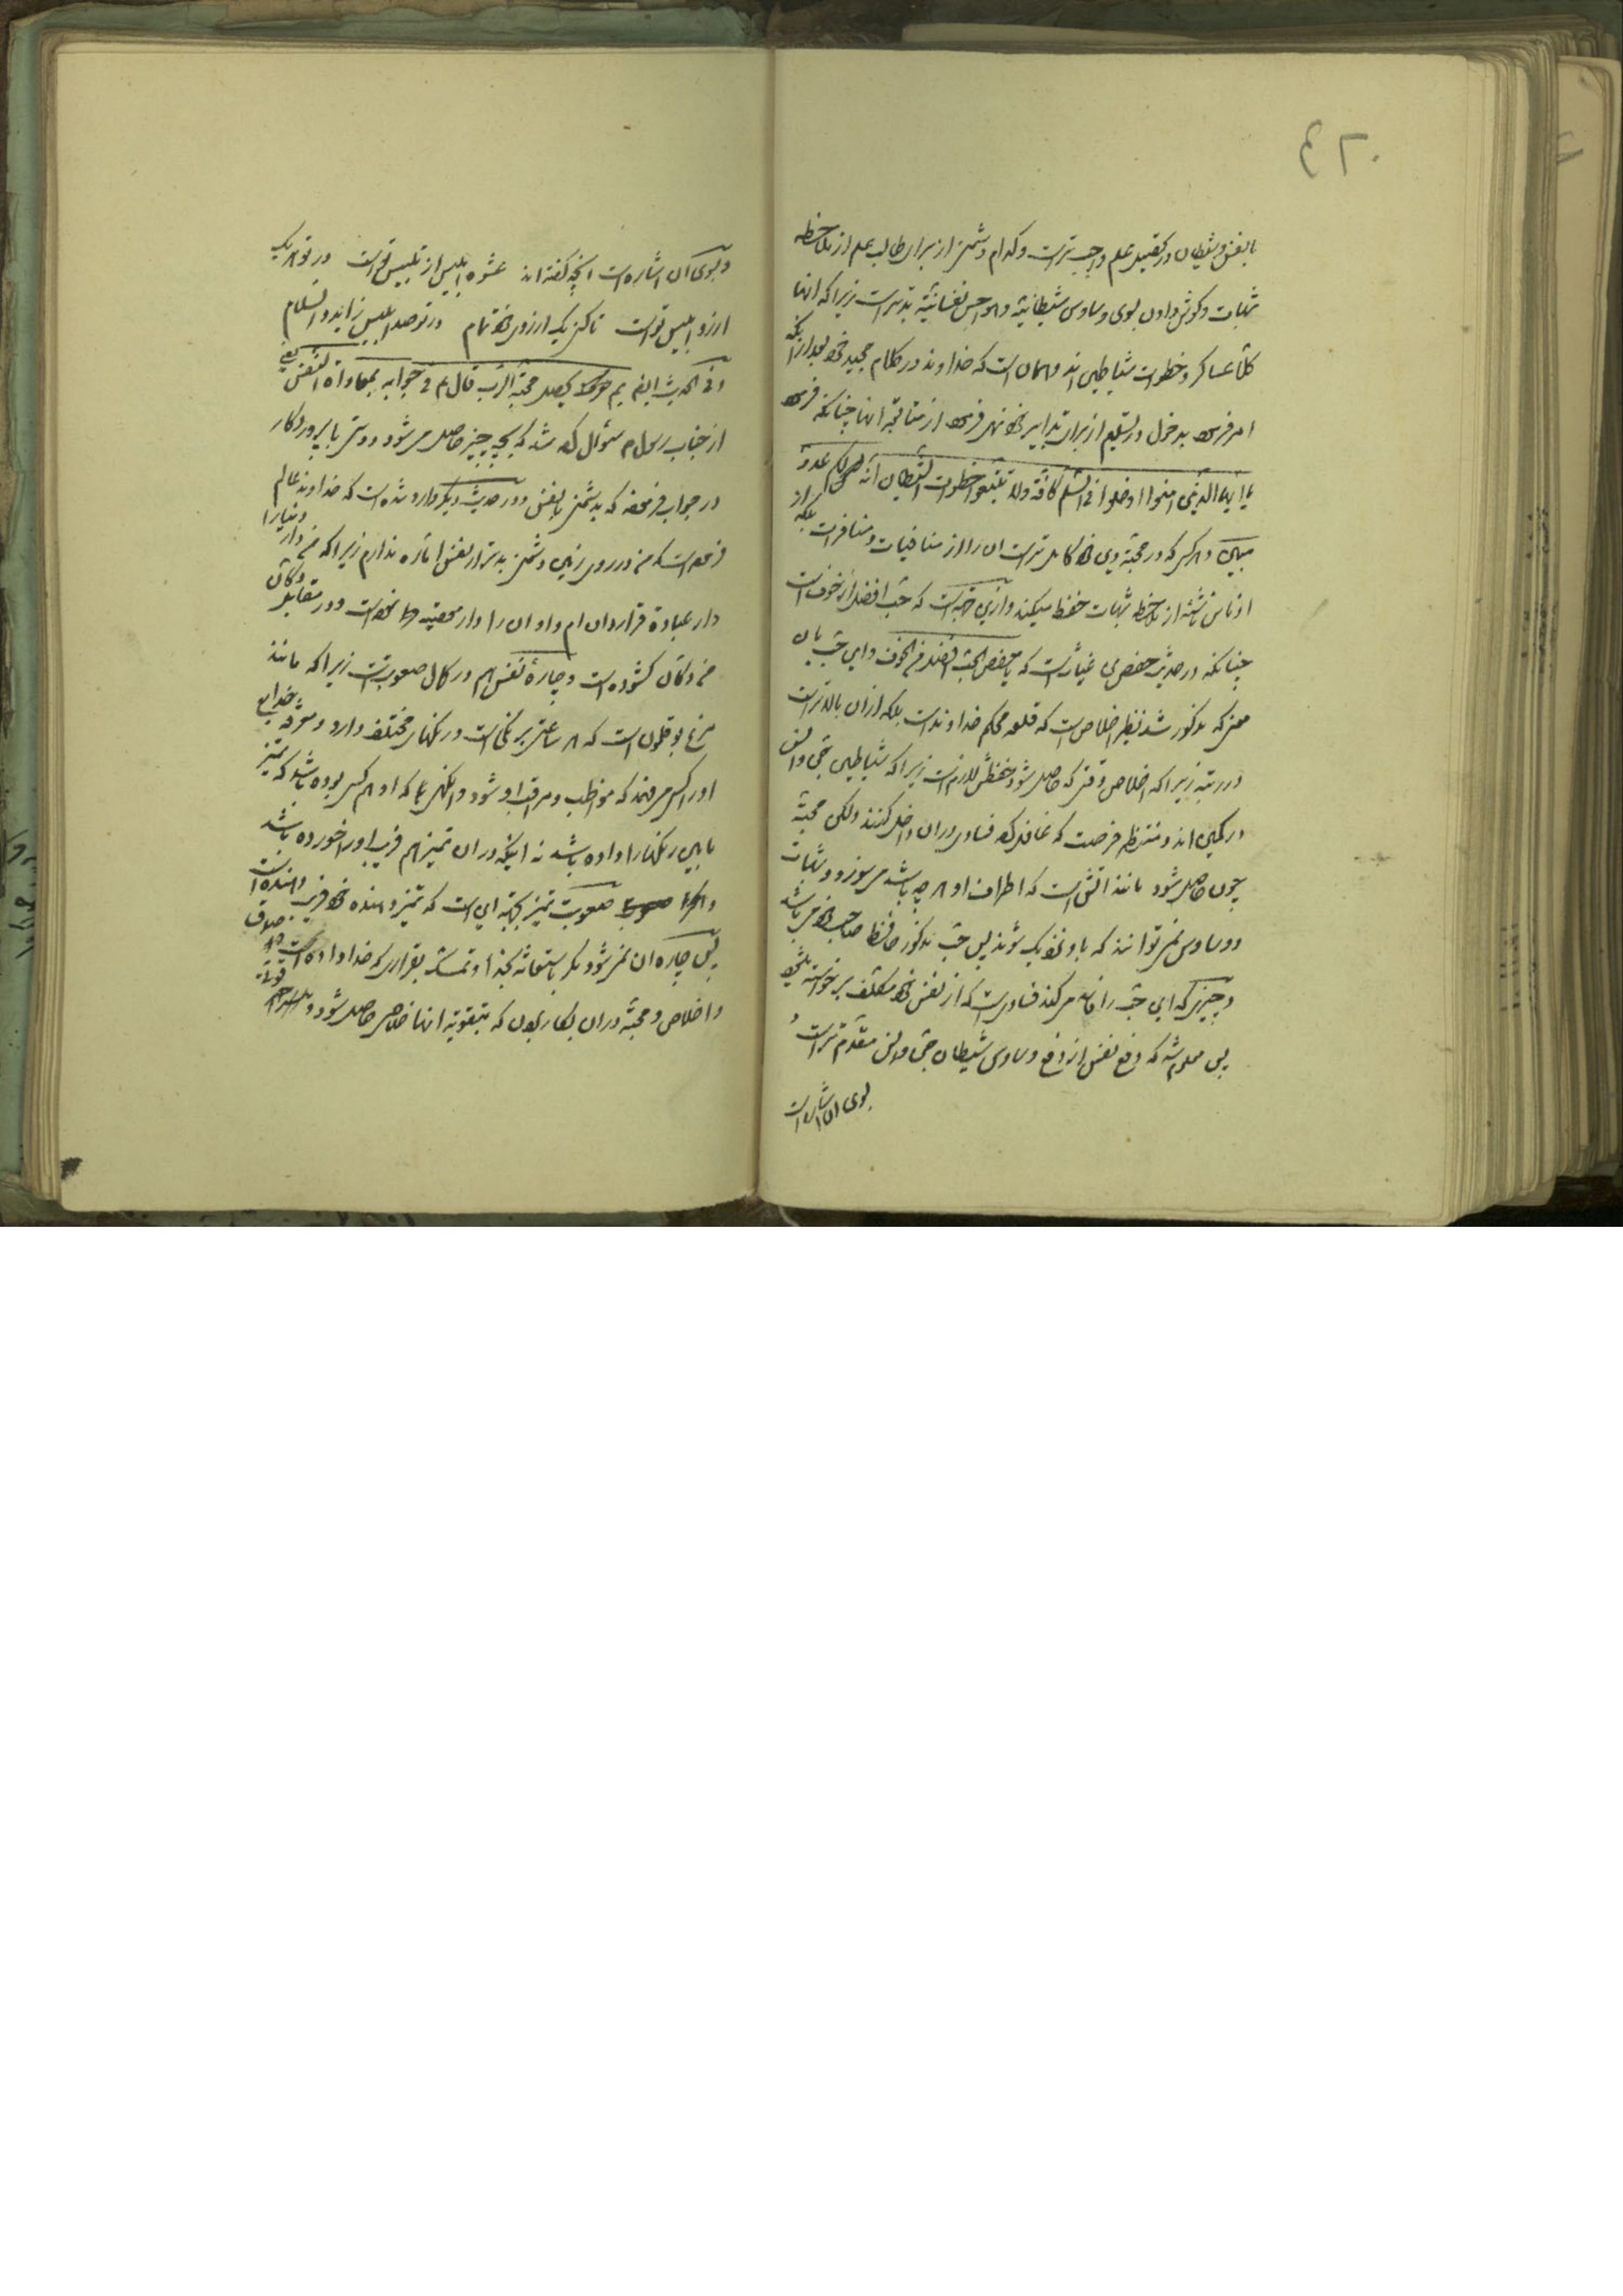 با نفس و شیطان در تحصیل علم واجب تر است و کدام دشمنی از برای طالب علم از ملاحظه
شبهات و گوش دادن بسوی وساوس شیطانیّه و هواجس نفسانیّه بدتر است زیرا که انها
کلّا عساکر و خطوات شیاطین اند و همان است که خداوند در کلام مجید خود بعد از انکه
امر فرموده بدخول در تسلیم از برای تدابیر خود نهی فرموده از متابعة انها چنانکه فرموده
یا ایها الذین امنوا ادخلوا فی السّلم کافّة ولا تتبعوا خطوات الشّیطان انّه لکم عدوّ
مبین و هر کس که در محبّة وی کامل تر است ان را از منافیات و منافرات بلکه از
ادناس ناشئه از ملاحظه شبهات حفظ میکند و ازین جهة است که حبّ افضل از خوف است
چنانکه در حدیث حفص بن غیاث است که یا حفص الحبّ افضل من الخوف و این حبّ بان
معنی که مذکور شد نظیر اخلاص است که قلعه محکم خداوند است بلکه از ان بالاتر است
در رتبه زیرا که اخلاص وقتی که حاصل شود حفظش لازم است زیرا که شیاطین جنّ و انس
در کمین اند و منتظر فرصت که غافل کرده فسادی در ان داخل کنند ولکن محبّة
چون حاصل شود مانند اتش است که اطراف او هر چه باشد می سوزد و شبهات
و وساوس نمی توانند که باو نزدیک شوند پس حبّ مذکور حافظ صاحب خود می باشد
و چیزی که این حبّ را فاسد می کند فسادی است که از نفس خود مکلّف برخواسته
پس معلوم شد که دفع نفس از دفع وساوس شیطان جنّ و انس مقدّم تر است و
بسوی ان اشاره است
و بسوی ان اشاره است انچه گفته اند عشوه ابلیس از تلبیس تو است در تو هر یک
ارزو ابلیس تو است تا کنی یک ارزوی خود تمام در تو صد ابلیس زاید والسّلام
و فی الحدیث ایضا بم یحصل محبّة الرّب قال ع فی جوابه بمعاداة النّفس یعنی
از جناب رسول ص سؤال کرده شد که بچه چیز حاصل می شود دوستی با پروردکار
در جواب فرموده که بدشمنی با نفس و در حدیث دیگر وارد شده است که خداوند عالم
فرموده است که من در روی زمین دشمنی بدتر از نفس امّاره ندارم زیرا که من دنیا را دار
دار عبادة قرار داده ام و او ان را دار معصیة نموده است و در مقابل دکان
من دکان کشوده است و چارهٔ نفس هم در کمال صعوبت است زیرا که مانند
مرغ بوقلمون است که هر ساعتی برنگی است و رنگهای مختلف دارد و معرفة خدایع
او را کسی می فهمد که مواظب و مراقب او شود و انکس بما که او هم کسی بوده باشد که تمیز
ما بین رنگها را داده باشد نه اینکه در ان تمیز هم فریب او را خورده باشد
صعوبت تمیز بجهة این است که تمیز دهنده خود فریب دهنده است
پس چاره ان نمی شود مکر باستغاثه بخدا و تمسّک بقراری که خدا داده است صلاة
و اخلاص و محبّة در ان بکار بردن که بتقویة انها خلاص حاصل شود